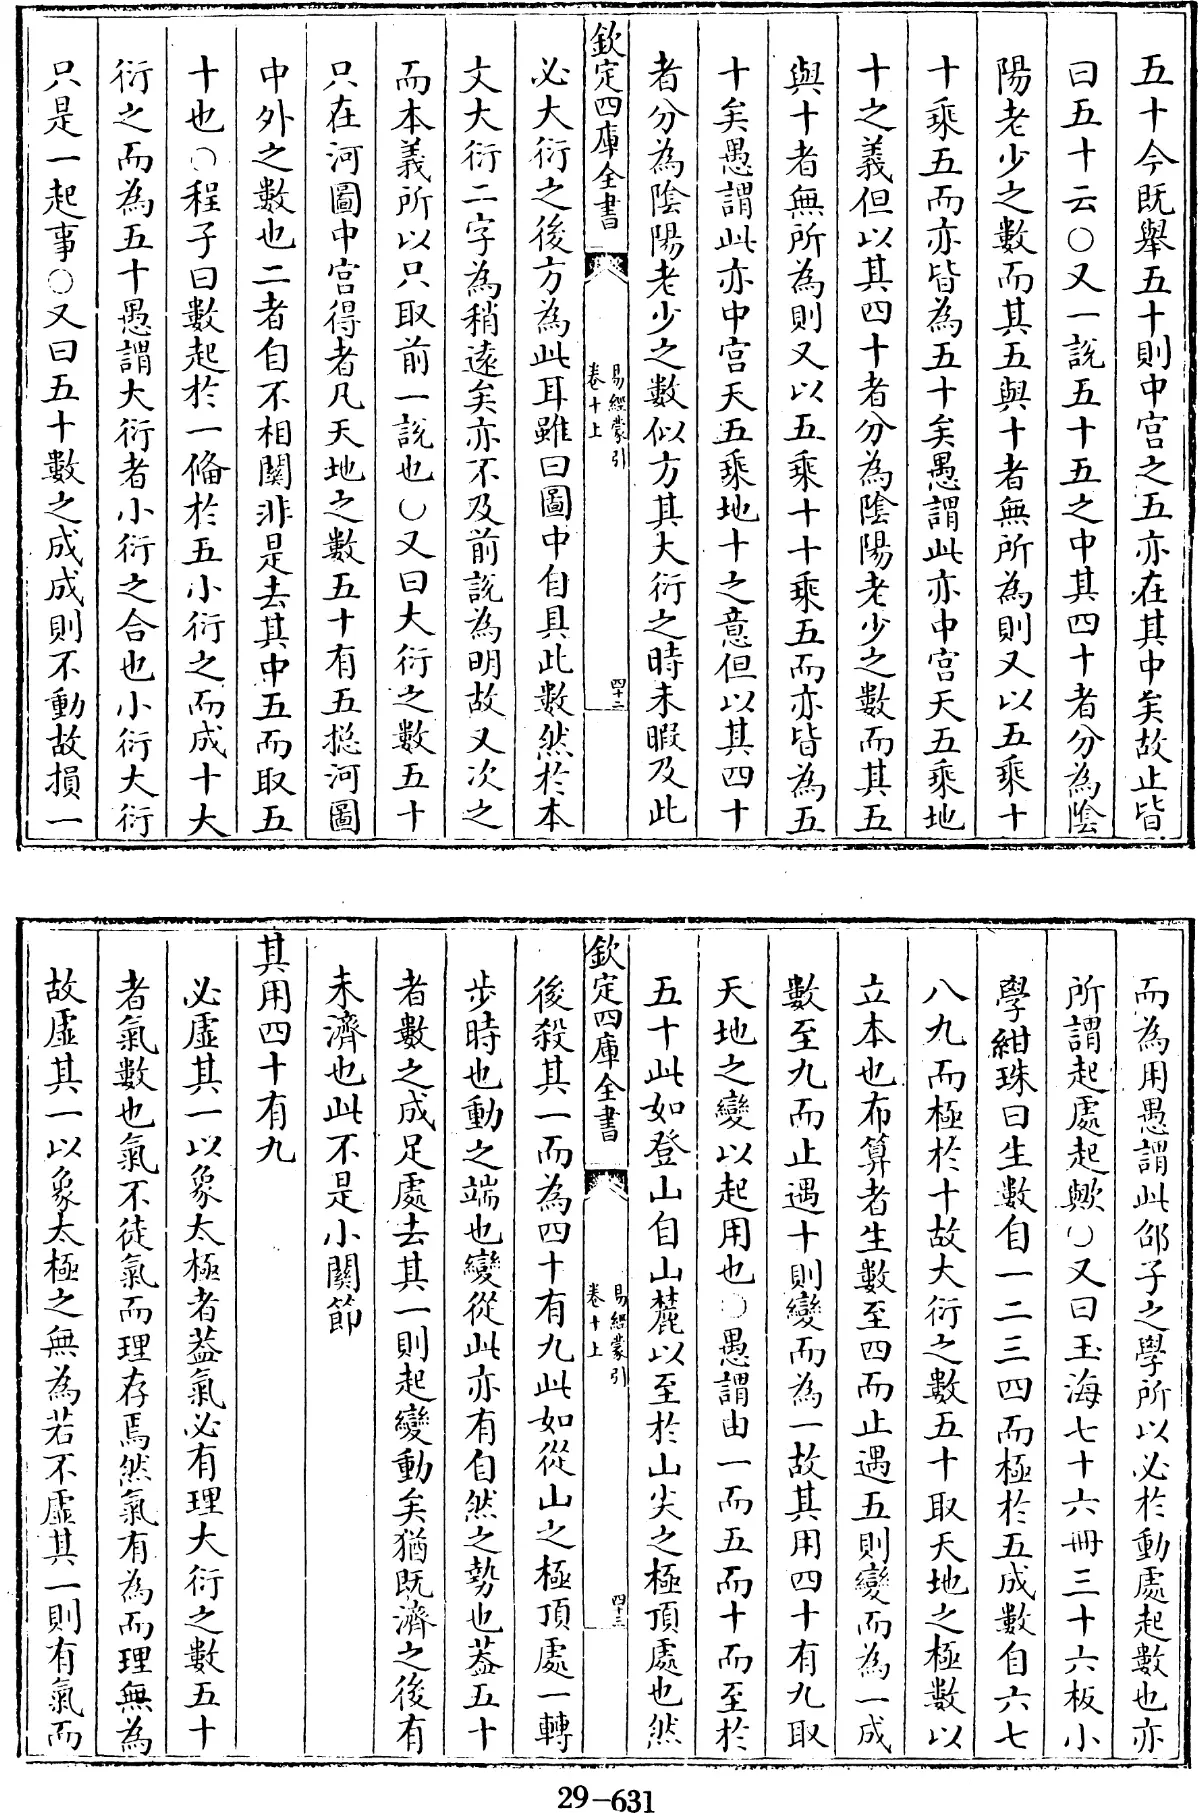 五十今既舉五十則中宫之五亦在其中矣故止皆
曰五十云○又一説五十五之中其四十者分為陰
陽老少之數而其五與十者無所為則又以五乘十
十乘五而亦皆為五十矣愚謂此亦中宫天五乘地
十之義但以其四十者分為陰陽老少之數而其五
與十者無所為則又以五乘十十乘五而亦皆為五
十矣愚謂此亦中宫天五乘地十之意但以其四十
者分為陰陽老少之數似方其大衍之時未暇及此
欽定四庫全書
易經蒙引
卷十上
四十二
必大衍之後方為此耳雖曰圖中自具此數然於本
文大衍二字為稍逺矣亦不及前説為明故又次之
而本義所以只取前一説也○又曰大衍之數五十
只在河圖中宫得者凡天地之數五十有五揔河圖
中外之數也二者自不相關非是去其中五而取五
十也○程子曰數起於一備於五小衍之而成十大
衍之而為五十愚謂大衍者小衍之合也小衍大衍
只是一起事○又曰五十數之成成則不動故損一
而為用愚謂此邵子之學所以必於動處起數也亦
所謂起處起歟○又曰玉海七十六冊三十六板小
學紺珠曰生數自一二三四而極於五成數自六七
八九而極於十故大衍之數五十取天地之極數以
立本也布算者生數至四而止遇五則變而為一成
數至九而止遇十則變而為一故其用四十有九取
天地之變以起用也○愚謂由一而五而十而至於
五十此如登山自山麓以至於山尖之極頂處也然
欽定四庫全書
易經蒙引
卷十上
四十三
後殺其一而為四十有九此如從山之極頂處一轉
步時也動之端也變從此亦有自然之勢也葢五十
者數之成足處去其一則起變動矣猶既濟之後有
未濟也此不是小關節
其用四十有九
必虛其一以象太極者葢氣必有理大衍之數五十
者氣數也氣不徒氣而理存焉然氣有為而理無為
故虛其一以象太極之無為若不虛其一則有氣而
29-631